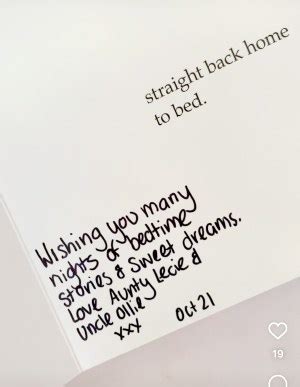 straight back home
to bed.
Wishing you many
nights of bedtime
stories & sweet dreams.
Love Aunty Lecie &
Uncle Ollie
xxx Oct 21
19